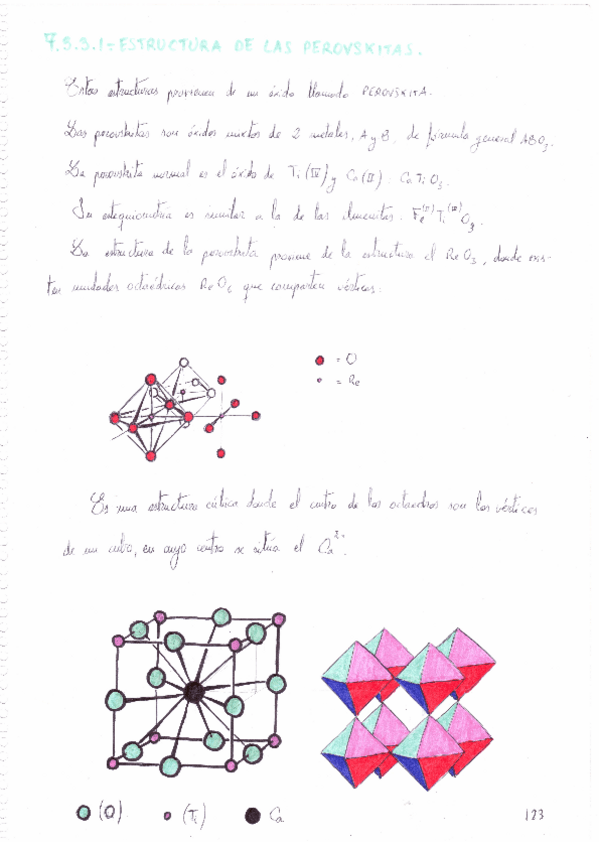 7.5.3.1 = ESTRUCTURA DE LAS PEROVSKITAS.
Estas estructuras provienen de un óxido llamado PEROVSKITA.
Las perovskitas son óxidos mixtos de 2 metales, A y B, de fórmula general ABO3.
La perovskita normal es el óxido de Ti(IV) y Ca(II). CaTiO3.
Su estequiometría es similar a la de las ilmenitas. Fe(II)Ti(IV)O3.
La estructura de la perovskita proviene de la estructura el ReO3, donde exis-
ten unidades octaédricas ReO6 que comparten vértices:
= O
= Re
Es una estructura cúbica donde el centro de los octaedros son los vértices
de un cubo, en cuyo centro se sitúa el Ca2+.
(O) (Ti) Ca
123